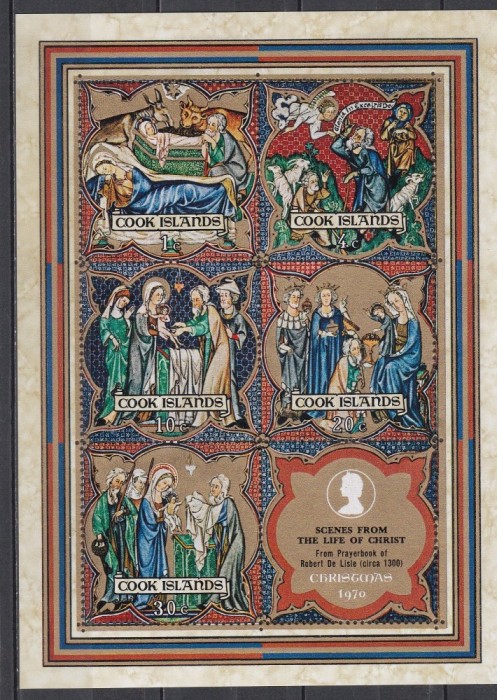 Gloria in excelsis deo
COOK ISLANDS
1c
COOK ISLANDS
4c
COOK ISLANDS
10c
COOK ISLANDS
20c
COOK ISLANDS
30c
SCENES FROM
THE LIFE OF CHRIST
From Prayerbook of
Robert De Lisle (circa 1300)
CHRISTMAS
1970